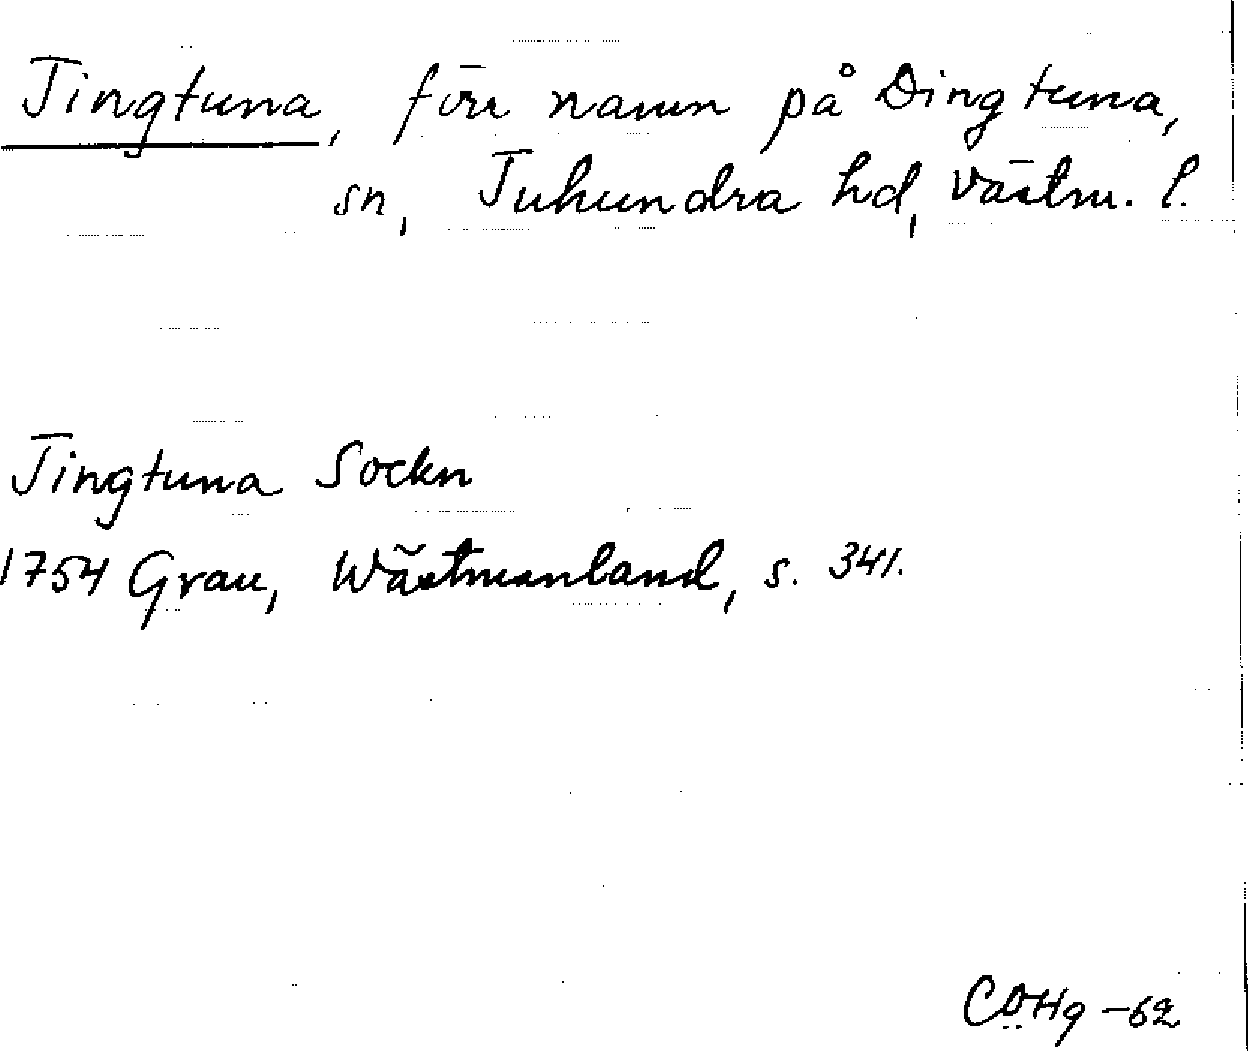 Tingtuna, förr namn på Dingtuna,
sn, Tuhundra hd, Västm. l.
Tingtuna Sockn
1754 Grau, Wästmanland, s. 341.
COHg -62